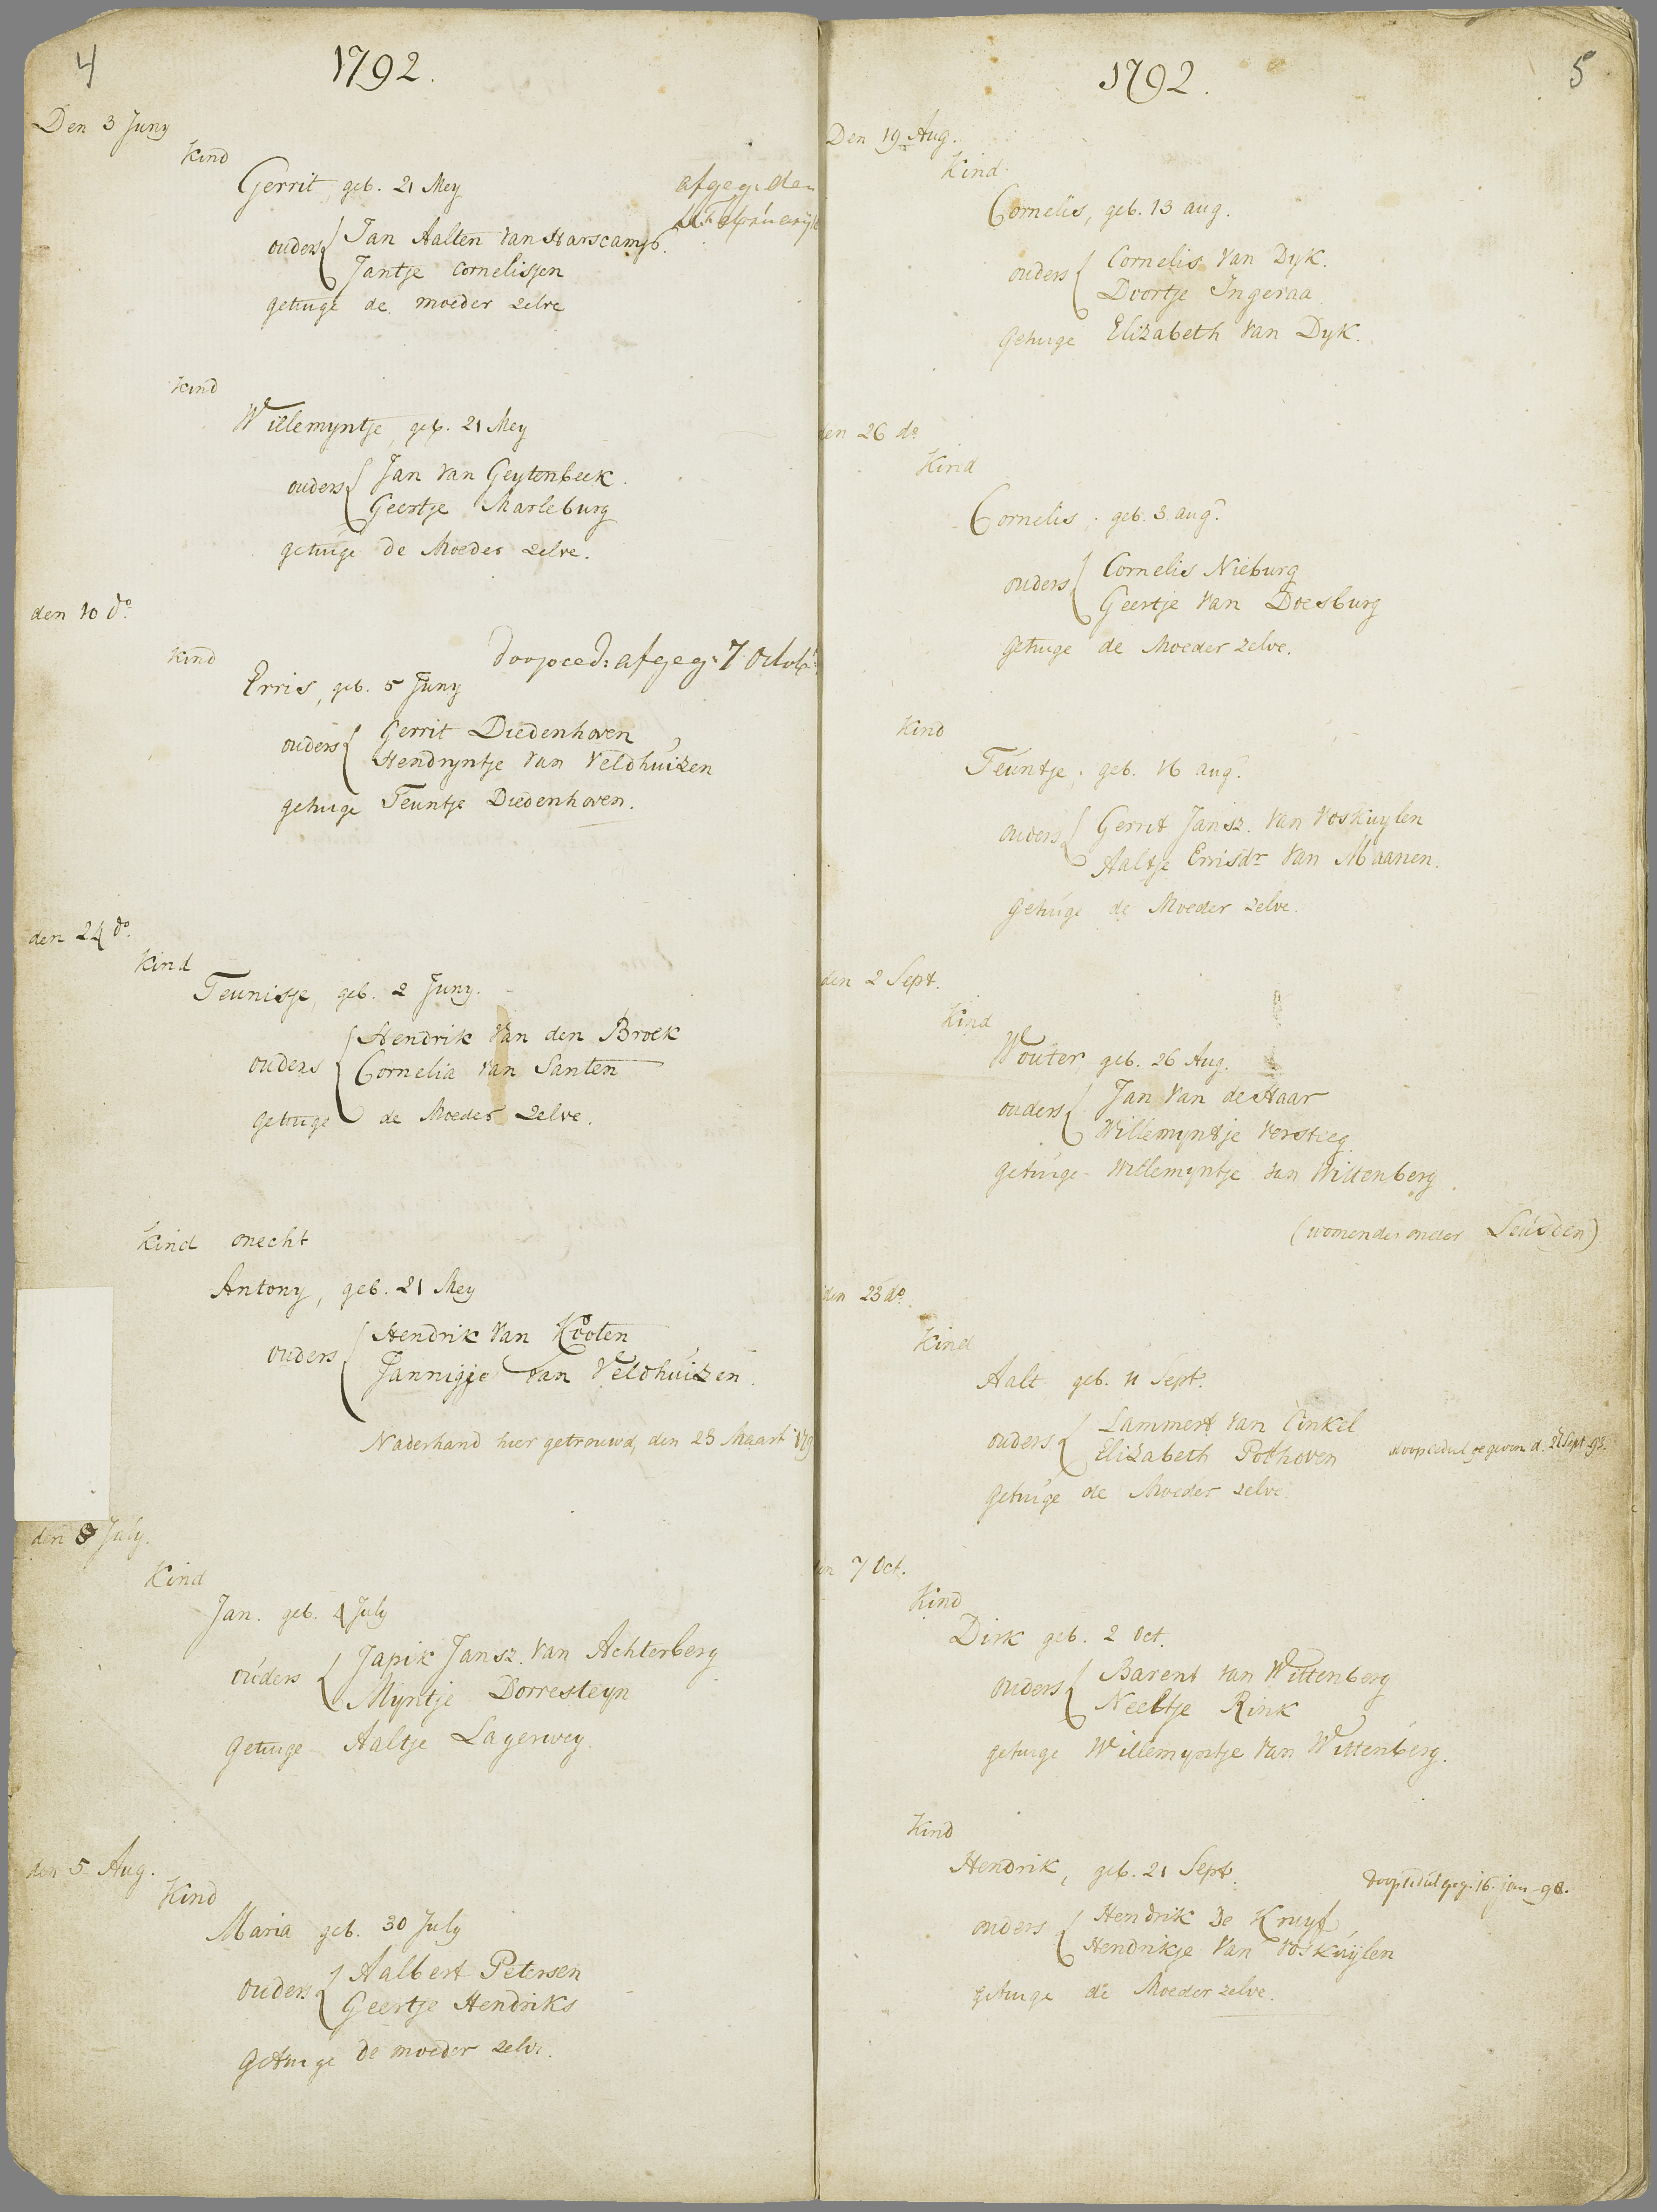 4
1792.
Den 3 Juny
Kind
Gerrit, geb. 21 Mey
afgeg: den
ouders Jan Aalten van Harscamp.
Jantje Cornelissen
getuige de moeder zelve
Kind
Willemyntje, geb. 21 Mey
ouders Jan van Geytenbeek.
Geertje Marleburg
getuige de Moeder zelve.
den 10 do
doopced: afgeg: 7 Octob
Kind
Erris, geb. 5 Juny
ouders Gerrit Diedenhoven
Hendryntje van Veldhuizen
getuige Teuntje Diedenhoven.
den 24 do.
Kind
Teunisje, geb. 2 Juny.
ouders Hendrik van den Broek
Cornelia van Santen
getuige de Moeder zelve.
Kind onecht
Antony, geb. 21 Mey
ouders Hendrik van Kooten
Jannigje van Veldhuizen.
Naderhand hier getrouwd, den 23 Maart 179
den 8 July.
Kind
Jan. geb. 4 July
ouders Japik Jansz. van Achterberg
Myntje Dorresteyn
Getuige Aaltje Lagerwey.
den 5 Aug.
Kind
Maria geb. 30 July
ouders Aalbert Petersen
Geertje Hendriks
Getuige de moeder zelve.
1792.
5
Den 19 Aug.
Kind
Cornelis, geb. 13 aug.
ouders Cornelis van Dyk.
Doortje Ingeraa
Getuige Elizabeth van Dyk.
den 26 do
Kind
Cornelis, geb. 3 aug.
ouders Cornelis Nieburg
Geertje van Doesburg
Getuige de Moeder zelve.
Kind
Teuntje, geb. 16 aug.
ouders Gerrit Jansz. van Voskuylen
Aaltje Errisdr van Maanen.
Getuige de Moeder zelve.
den 2 Sept.
Kind
Wouter geb. 26 Aug.
ouders Jan van de Haar
Willemyntje Versteeg
getuige - Willemyntje van Wittenberg.
(womende onder Leusden)
den 23 do.
Kind
Aalt geb. 11 Sept.
ouders Lammert van Ginkel
Elizabeth Pothoven
doopcedul gegeven d. 27 Sept 93.
Getuige de Moeder zelve.
en 7 Oct.
Kind
Dirk geb. 2 Oct.
ouders Barent van Wittenberg
Neeltje Rink
getuige Willemyntje van Wittenberg.
Kind
Hendrik, geb. 21 Sept.
doopcedul geg. 16. jan - 98.
ouders Hendrik De Kruyf
Hendrikje van Voskuylen
getuige de Moeder zelve.